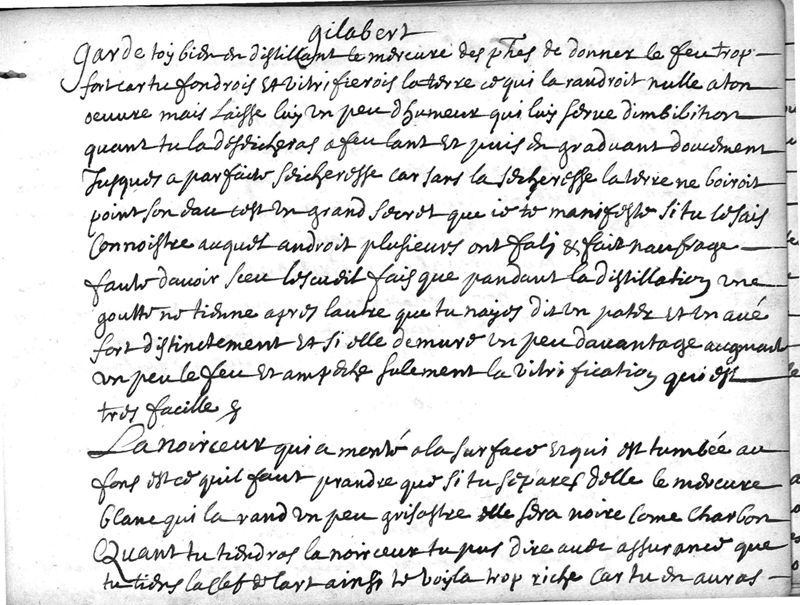 gilabert
garde toy bien en distillant le mercure des phes de donner le feu trop
fort car tu fondrois et vitrifierois la terre ce qui la randroit nulle a ton
oeuvre mais laisse luy un peu dhumeur qui luy serve dimbibition
quant tu la deseicheras a feu lant et puis en graduant doucement
jusques a parfaite seicheresse car sans la seicheresse la terre ne boiroit
point son eau cest un grand secret que je te manifeste si tu le sais
connoistre auquel androit plusieurs ont fali & fait naufrage
faute davoir sceu lescueil fais que pandant la distillation une
goutte ne tienne apres lautre que tu nayes dit un pater et un avé
fort distinctement et si elle demure un peu davantage augmate
un peu le feu et ampeche sulement la vitrification qui est
tres facille
La noirceur qui a monté a la surface et qui est tumbée au
fons est ce quil faut prandre que si tu separes delle le mercure
blanc qui la rand un peu grisastre elle sera noire come charbon
Quant tu tiendras la noirceur tu pus dire avec assurance que
tu tiens la clef de lart ainsi te voyla trop riche car tu en auras